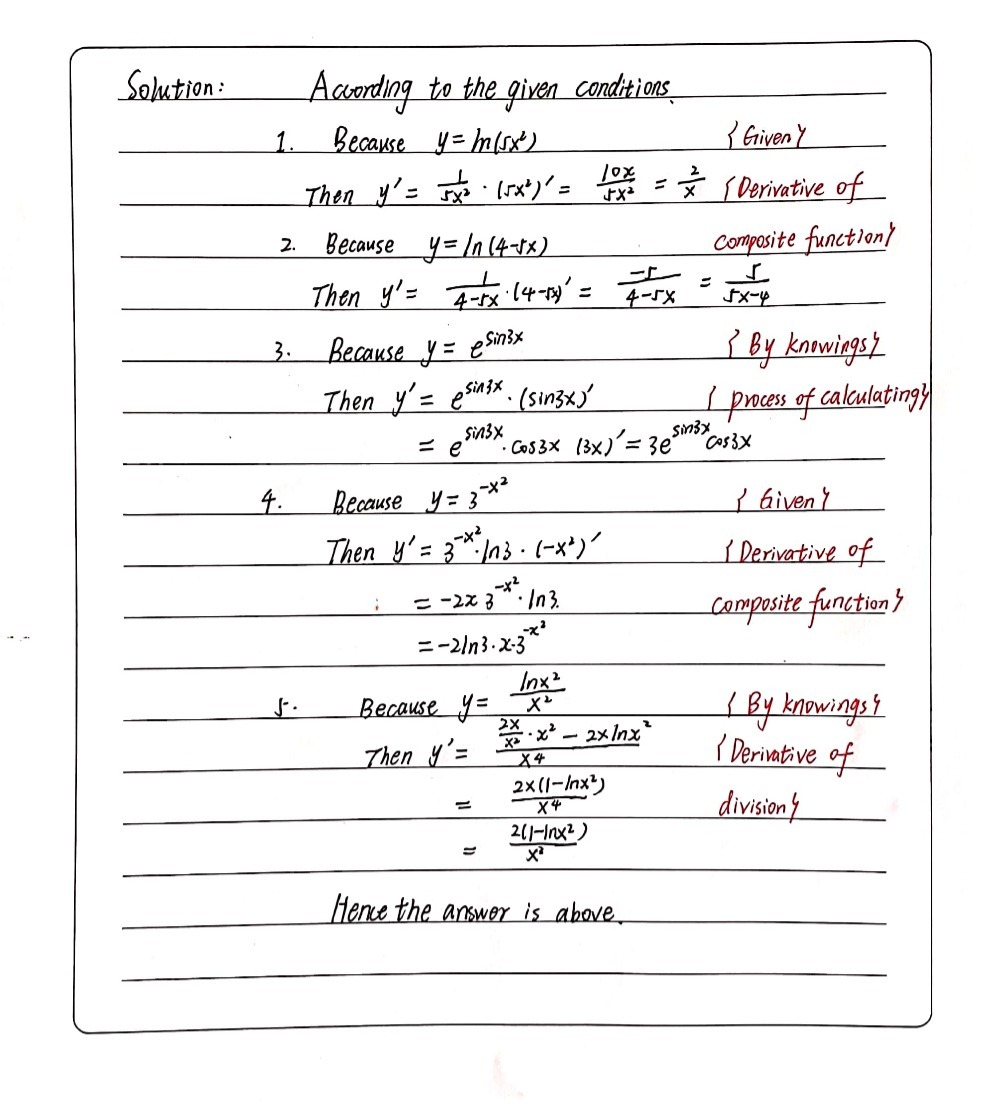 Solution: According to the given conditions.
1. Because y = ln(5x²) {Given}
Then y′ = 1/5x² · (5x²)′ = 10x/5x² = 2/x {Derivative of
2. Because y = ln(4-5x) composite function}
Then y′ = 1/4-5x · (4-5x)′ = -5/4-5x = 5/5x-4
3. Because y = e^sin3x {By knowings}
Then y′ = e^sin3x · (sin3x)′ { process of calculating}
= e^sin3x · cos3x (3x)′ = 3e^sin3x cos3x
4. Because y = 3^-x² { Given}
Then y′ = 3^-x² · ln3 · (-x²)′ {Derivative of
= -2x 3^-x² · ln3. composite function}
= -2ln3 · x · 3^-x²
5. Because y = lnx²/x² { By knowings}
Then y′ = 2x/x² · x² - 2x lnx²/x4 {Derivative of
= 2x(1-lnx²)/x4 division}
= 2(1-lnx²)/x³
Hence the answer is above.